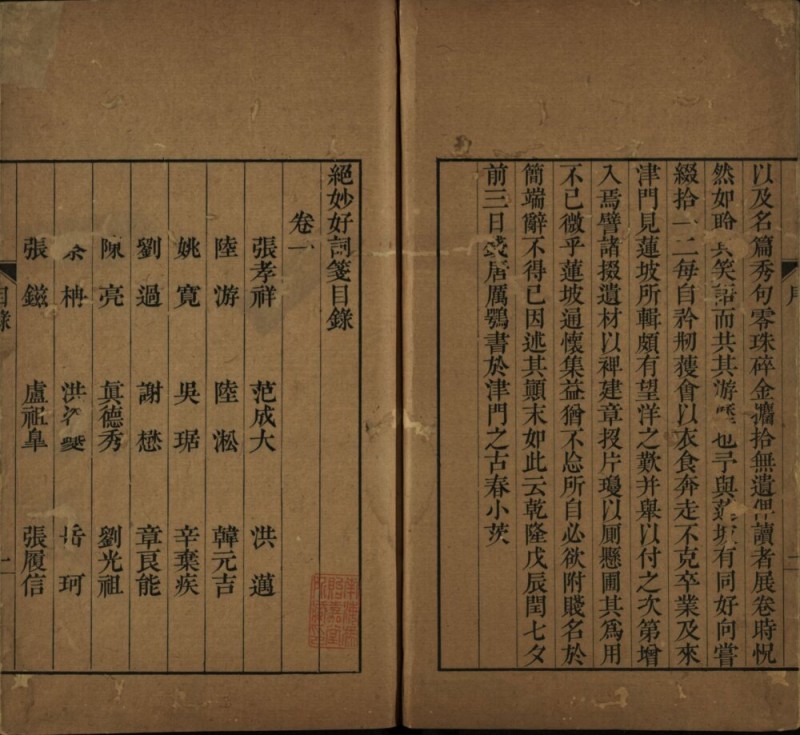 以及名篇秀句零珠碎金攟拾無遺俾讀者展卷時怳
然如聆其笑語而共其游也予與蓮坡有同好向嘗
綴拾一二每自矜剏獲會以衣食奔走不克卒業及來
津門見蓮坡所輯頗有望洋之歎并舉以付之次第增
入焉譬諸掇遺材以裨建章投片瓊以厠懸圃其爲用
不已微乎蓮坡通懷集益猶不忘所自必欲附賤名於
簡端辭不得已因述其顚末如此云乾隆戊辰閏七夕
前三日錢唐厲鶚書於津門之古春小茨
絕妙好詞箋目錄
卷一
張孝祥 范成大 洪邁
陸游 陸淞 韓元吉
姚寬 吳琚 辛棄疾
劉過 謝懋 章良能
陳亮 眞德秀 劉光祖
洪 珂
張鎡 盧祖皐 張履信
目錄